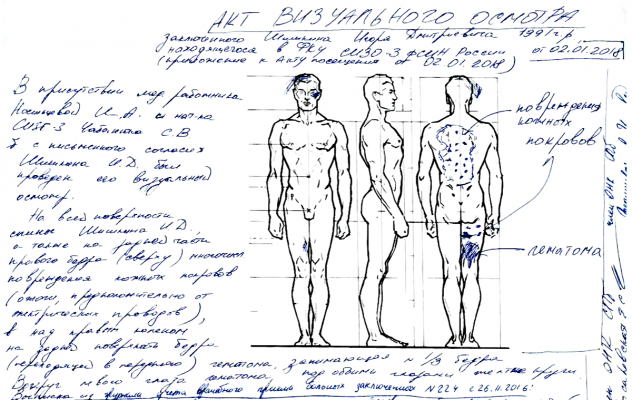 АКТ ВИЗУАЛЬНОГО ОСМОТРА
заключенного Шишкина Игоря Дмитриевича 1991 г.р.
находящегося в ФКУ СИЗО-3 ФСИН России
(приложение к Акту посещения от 02.01.2018)
от 02.01.2018
В присутствии мед. работника
И.А. и нач-ка
СИЗО-3 С.В
с письменного согласия
Шишкина И.Д. был
проведен его визуальный
осмотр.
На всей поверхности
спины Шишкина И.Д.,
а также на задней части
правого бедра (сверху) многочисл.
повреждения кожных покровов
(ожоги, предположительно от
электрических проводов),
над правым коленом
на задней поверхности бедра
(переходящей в переднюю) гематома, занимающая ≈ 1/3 бедра
Вокруг левого глаза гематома, под обоими глазами желтые круги
Выписка из журнала учета врачебного приема больных заключенных № 224 с 26.11.2016:
повреждения
кожных
покровов
гематома
член ОНК СПб
член ОНК СПб